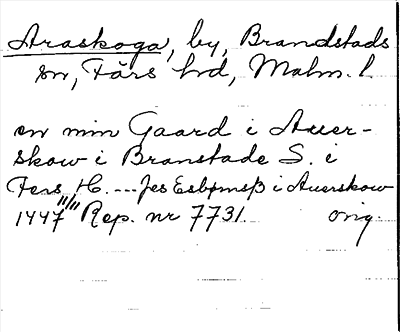 Araskoga, by, Brandstads
sn, Färs hd, Malm. l.
en min Gaard i Auer-
skow i Branstade S. i
Fers H. --- Jes Esbernsß i Auerskow
1447 11/11 Rep. nr 7731. orig.